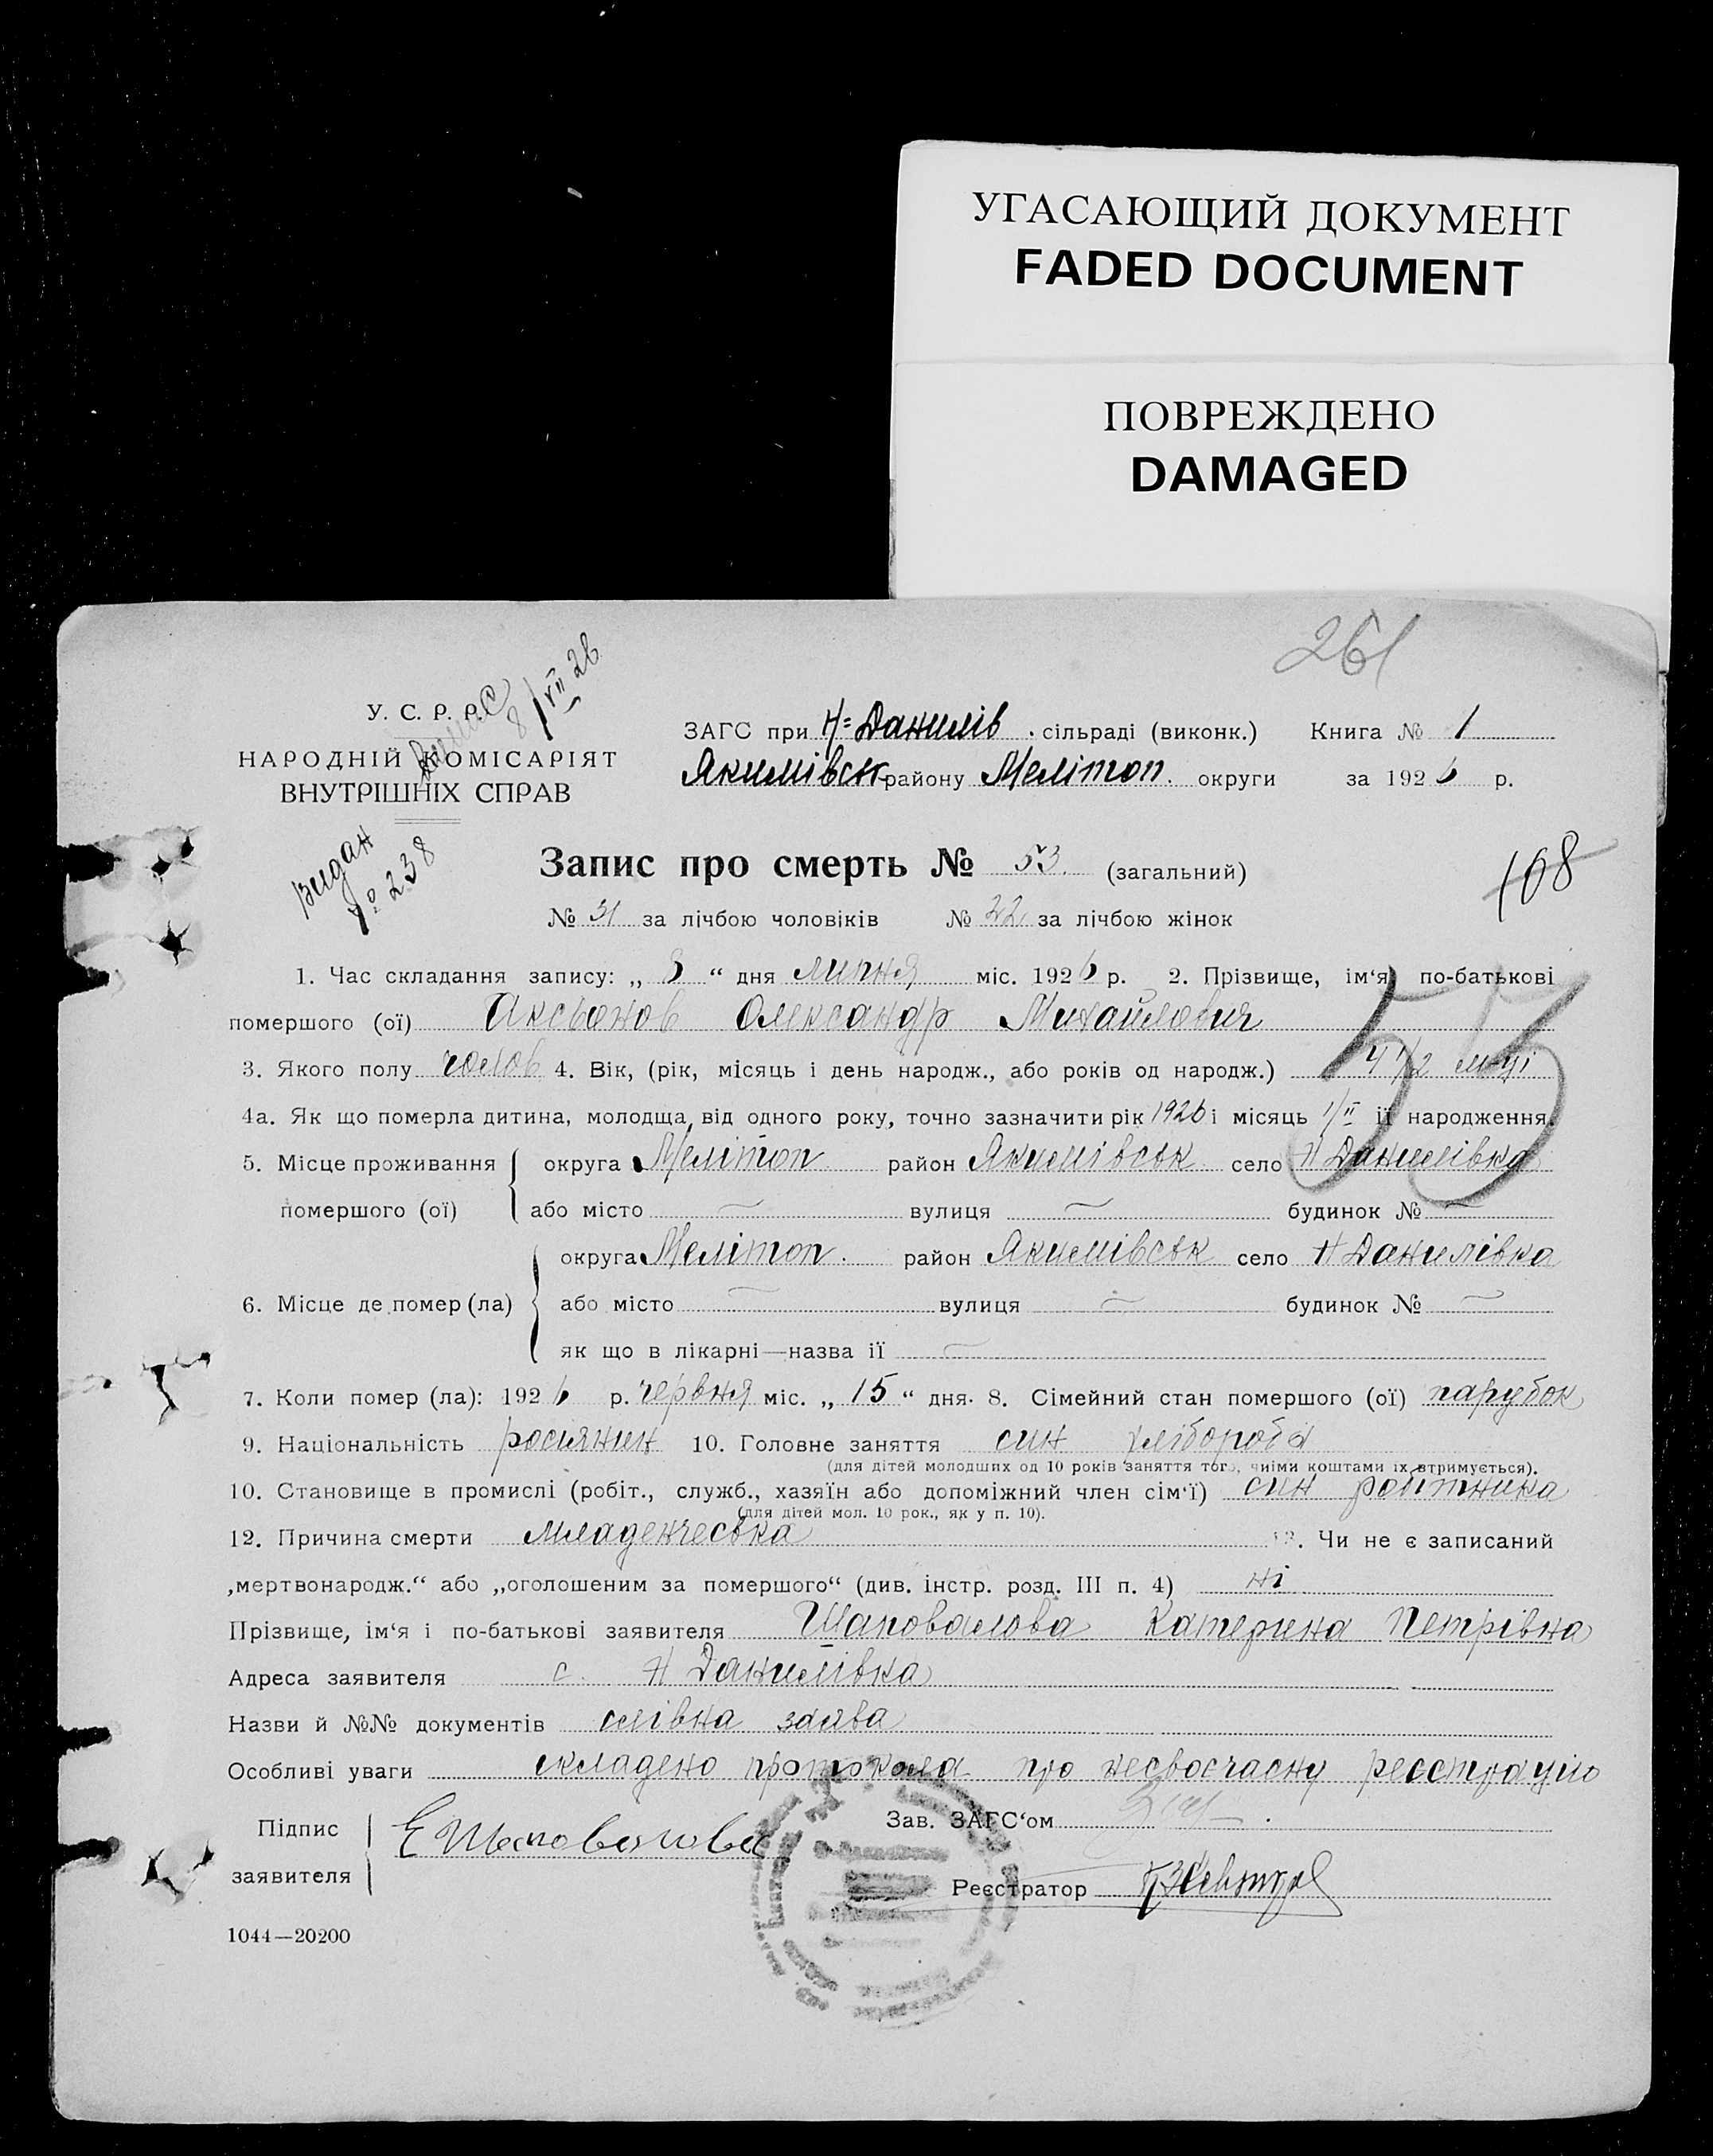 УГАСАЮЩИЙ ДОКУМЕНТ
FADED DOCUMENT
ПОВРЕЖДЕНО
DAMAGED
261
8/VII 26
У. С. Р. Р.
НАРОДНІЙ КОМІСАРІЯТ
ВНУТРІШНІХ СПРАВ
ЗАГС при Н=Данилів. сільраді (виконк.) Книга № 1
Якимівськ району Мелітоп. округи за 1926 р.
видан
№ 238
Запис про смерть № 53. (загальний)
108
№ 31 за лічбою чоловіків № 22 за лічбою жінок
53
1. Час складання запису: „ 8 “ дня липня міс. 1926 р. 2. Прізвище, ім‘я по-батькові
помершого (ої) Аксьонов Олександр Михайлович
3. Якого полу чолов 4. Вік, (рік, місяць і день народж., або років од народж.) 4 1/2 м-ці
4а. Як що померла дитина, молодща від одного року, точно зазначити рік 1926 і місяць 1/II її народження.
5. Місце проживання округа Мелітоп район Якимівськ село Н Данилівка
помершого (ої) або місто — вулиця — будинок № —
округа Мелітоп. район Якимівськ село Н Данилівка
6. Місце де помер (ла) або місто — вулиця — будинок № —
як що в лікарні—назва її —
7. Коли помер (ла): 1926 р. червня міс. „ 15 “ дня. 8. Сімейний стан помершого (ої) парубок
9. Національність росіянин 10. Головне заняття син хлібороба
(для дітей молодших од 10 років заняття того, чиїми коштами їх втримується).
10. Становище в промислі (робіт., служб., хазяїн або допоміжний член сім‘ї) син робітника
(для дітей мол. 10 рок., як у п. 10).
12. Причина смерти младенческа 13. Чи не є записаний
„мертвонародж.“ або „оголошеним за помершого“ (див. інстр. розд. III п. 4) ні
Прізвище, ім‘я і по-батькові заявителя Шаповалова Катерина Петрівна
Адреса заявителя с. Н Данилівка
Назви й №№ документів слівна заява
Особливі уваги складено протокола про несвоєчасну реєстрацію
Підпис Е Шаповалова Зав. ЗАГС‘ом
заявителя Реєстратор
1044—20200